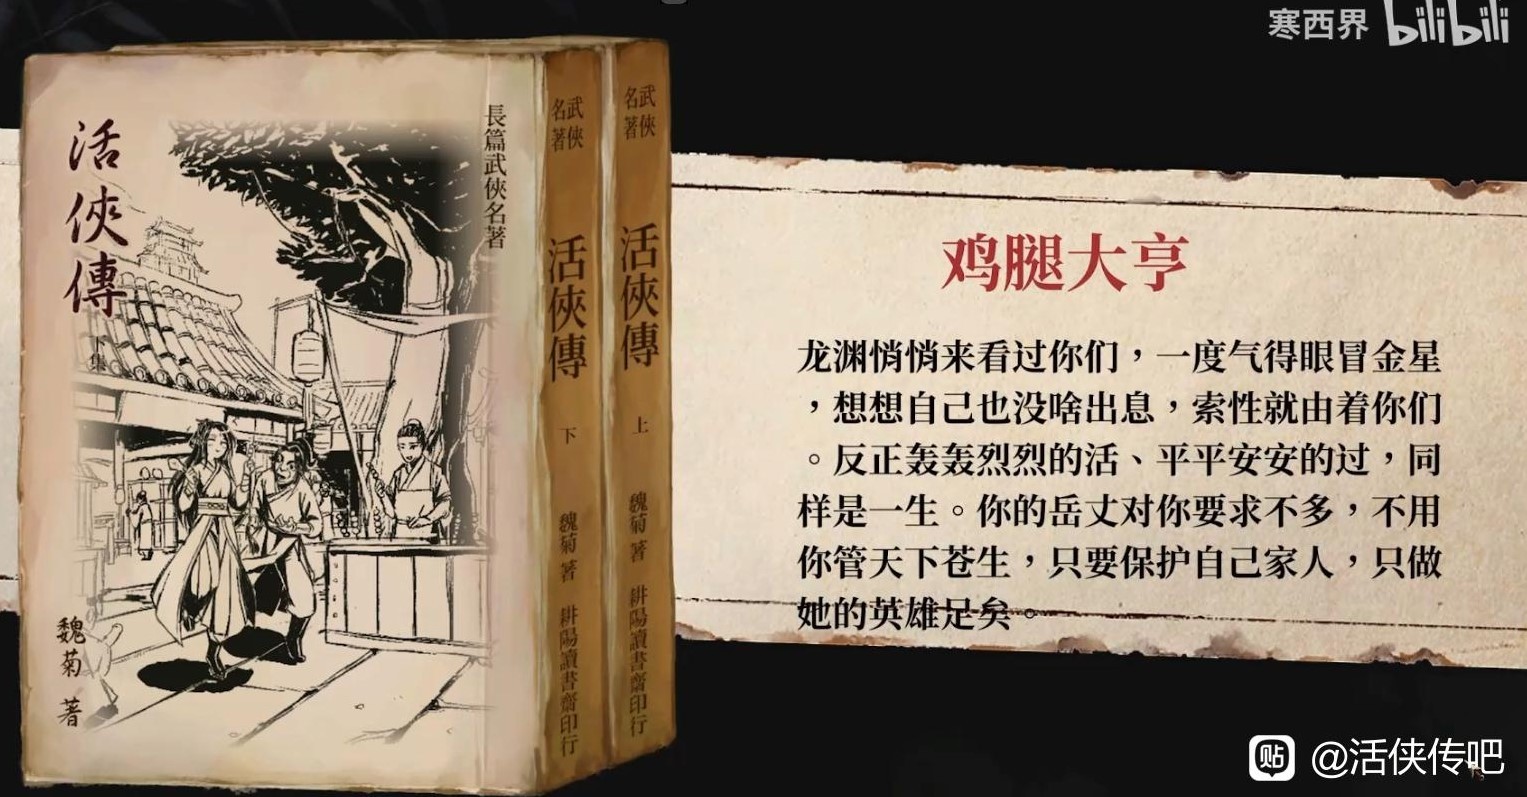 寒西界 bilibili
活俠傳
下集
魏菊 著
長篇武俠名著
武俠名著
活俠傳
下
魏菊 著
耕陽讀書齋印行
武俠名著
活俠傳
上
魏菊 著
耕陽讀書齋印行
鸡腿大亨
龙渊悄悄来看过你们，一度气得眼冒金星
，想想自己也没啥出息，索性就由着你们
。反正轰轰烈烈的活、平平安安的过，同
样是一生。你的岳丈对你要求不多，不用
你管天下苍生，只要保护自己家人，只做
她的英雄足矣。
贴 @活侠传吧